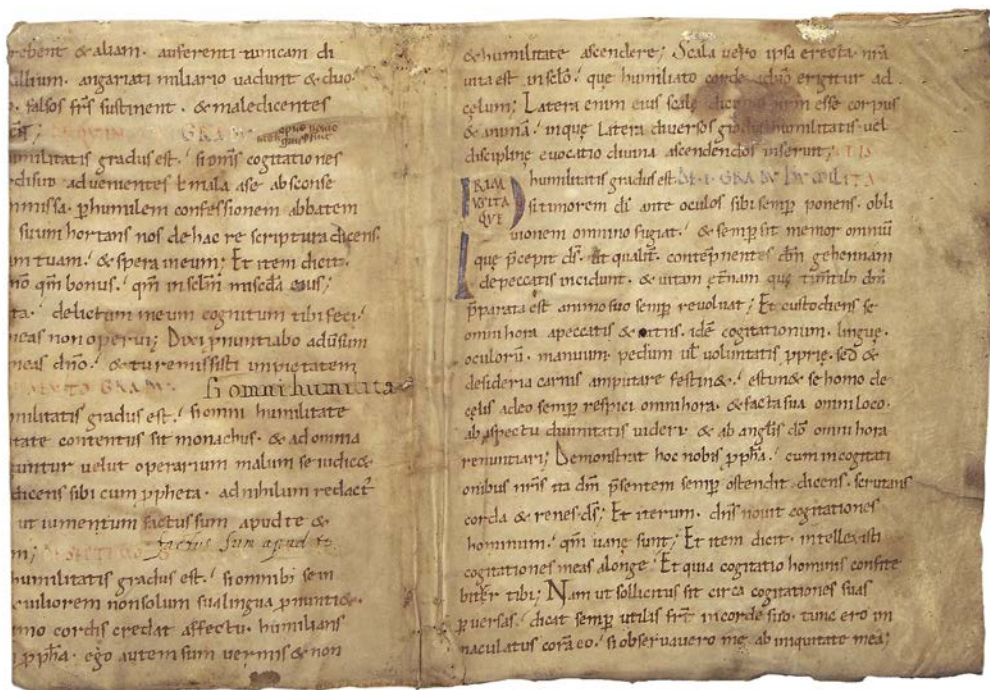 rebent & aliam. auferenti tunicam di
allium. angariati miliario uadunt & duo.
falsos fr̄s sustinent. & maledicentes
GRADU
umilitatis gradus est. si om̄s cogitationes
rdi suo aduenientes ł mala a se absconse
mmissa. p humilem confessionem abbatem
suum hortans nos de hac re scriptura dicens.
m tuam. & spera in eum; Et item dicit.
nō qm̄ bonus. qm̄ in sclm̄ misc̄da eius;
ta. delictum meum cognitum tibi feci.
meas non operui; Dixi pnuntiabo aduersum
meas dn̄o. & tu remisisti impietatem
GRADU si omni humilita
militatis gradus est. si omni humilitate
itate contentus sit monachus. & ad omnia
untur uelut operarium malum se iudic&
dicens sibi cum ppheta. ad nihilum redact᷒
ut iumentum factus sum apud te &
m; factus sum apud te
humilitatis gradus est. si omnibꝰ sem
& uiliorem non solum sua lingua pnunti&.
imo cordis credat affectu. humilians
pph̄a. ego autem sum uermis & non
& humilitate ascendere; Scala uero ipsa erecta. nr̄a
uita est in sclō. que humiliato corde a dn̄o erigitur ad
cęlum; Latera enim eius scalę dicimus nr̄m esse corpus
& animā. in que latera diuersos gradus humilitatis uel
disciplinę euocatio diuina ascendendos inseruit;
PRIM humilitatis gradus est. DE I GRADU HUMILITA
US ITA si timorem dī ante oculos sibi semp ponens. obli
QUE uionem omnino fugiat. & semp sit memor omniū
que p̄cepit ds̄. Ut qualit᷒ contēpnentes dm̄ gehennam
de peccatis incidunt. & uitam ęt̄nam que timētibꝰ dm̄
p̄parata est animo suo semp reuoluat; Et custodiens se
omni hora a peccatis & uitiis. idē cogitationum. linguę.
oculorū. manuum. pedum uł uoluntatis pprię. sed &
desideria carnis amputare festin&. estim& se homo de
cęlis a deo semp respici omni hora. & facta sua omni loco.
ab aspectu diuinitatis uideri. & ab angłis dō omni hora
renuntiari; Demonstrat hoc nobis pph̄a. cum in cogitati
onibus nr̄is ita dm̄ p̄sentem semp ostendit dicens. scrutans
corda & renes ds̄; Et iterum. dn̄s nouit cogitationes
hominum. qm̄ uanę sunt; Et item dicit. intellexisti
cogitationes meas a longe. Et quia cogitatio hominis confite
bit᷒ tibi; Nam ut sollicitus sit circa cogitationes suas
puersas. dicat semp utilis fr̄t in corde suo. tunc ero im
maculatus corā eo. si obseruauero me ab iniquitate mea;